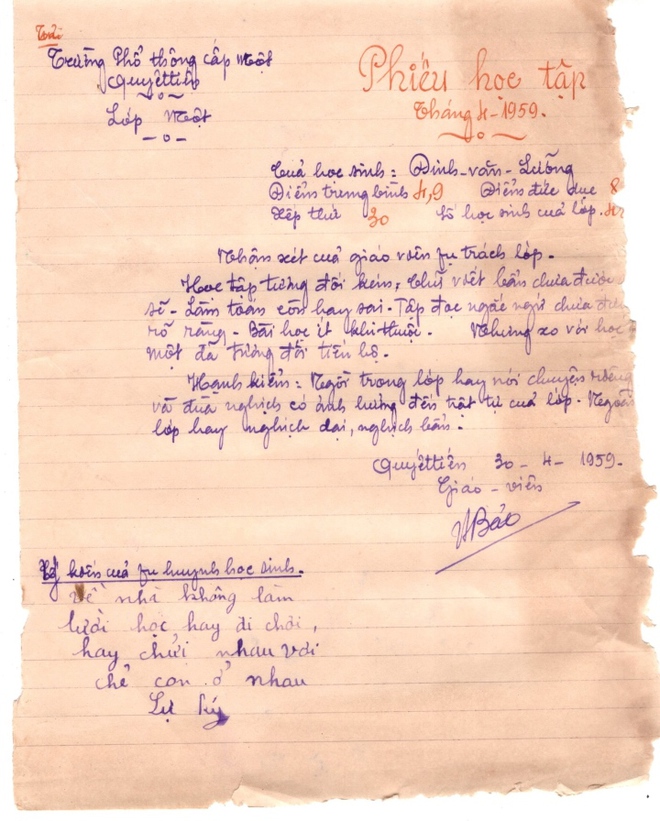 Trường Phổ thông cấp một
Quyếttiến
Lớp Một
Phiếu học tập
Tháng 4-1959.
Cuả học sinh: Đinh-văn-Lưỡng
Điểm trung bình 4,9 Điểm đức dục 8
Xếp thứ 30 Số học sinh cuả lớp.
Nhận xét cuả giáo viên fụ trách lớp.
Học tập tương đối kém, chữ viết bẩn chưa được
sẽ - Làm toán còn hay sai. Tập đọc ngắc ngứ chưa
rõ ràng - Bài học ít khi thuộc. Nhưng so với học
một đã tương đối tiến bộ.
Hạnh kiểm: Ngồi trong lớp hay nói chuyện riêng
và đuà nghịch có ảnh hưởng đến trật tự cuả lớp. Ngoài
lớp hay nghịch dại, nghịch bẩn.
Quyếttiến 30-4-1959.
Giáo-viên
VBảo
Ý kiến cuả fụ huynh học sinh.
Về nhà không làm
lười học hay đi chơi,
hay chửi nhau với
chẻ con ở nhau